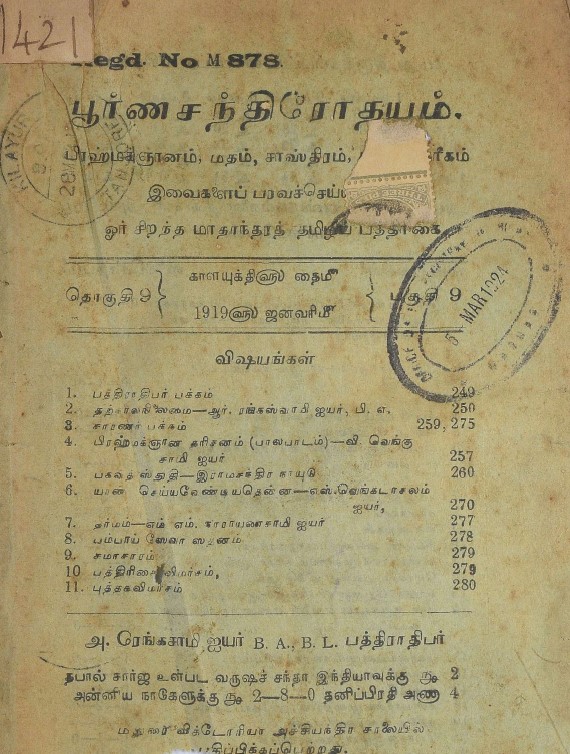 1421
Regd. No M 878.
பூர்ணசந்திரோதயம்.
பிரஹ்மக்ஞானம், மதம், சாஸ்திரம்,
இவைகளைப் பரவச்செய்
ஓர் சிறந்த மாதாந்தரத் தமிழ்ப் பத்திரிகை
தொகுதி 9 } காளயுக்தி௵ தை௴ { பகுதி 9
1919௵ ஜனவரி௴
5 MAR 1924
விஷயங்கள்
1. பத்திராதிபர் பக்கம் 249
2. தற்காலநிலைமை—ஆர். ரங்கஸ்வாமி ஐயர், பி. எ. 250
3. சாரணர் பக்கம் 259, 275
4. பிரஹ்மக்ஞான தரிசனம் (பாலபாடம்)—வி. வெங்கு
சாமி ஐயர் 257
5. பகவத் ஸ்துதி—இராமசந்திர நாயுடு 260
6. யான் செய்யவேண்டியதென்ன—எஸ். வெங்கடாசலம்
ஐயர், 270
7. தர்மம்—எம். எம். நாராயணசாமி ஐயர் 277
8. பம்பாய் ஸேவா ஸதனம் 278
9. சமாசாரம் 279
10 பத்திரிகை விமர்சம், 279
11. புத்தகவிமர்சம் 280
அ. ரேங்கசாமி ஐயர் B. A., B. L. பத்திராதிபர்
தபால் சார்ஜ உள்பட வருஷச் சந்தா இந்தியாவுக்கு ரூ. 2
அன்னிய நாடுகளுக்கு ரூ. 2—8—0 தனிப்பிரதி அணா 4
மதுரை விக்டோரியா அச்சியந்திர சாலையில்
பதிப்பிக்கப்பெற்றது.